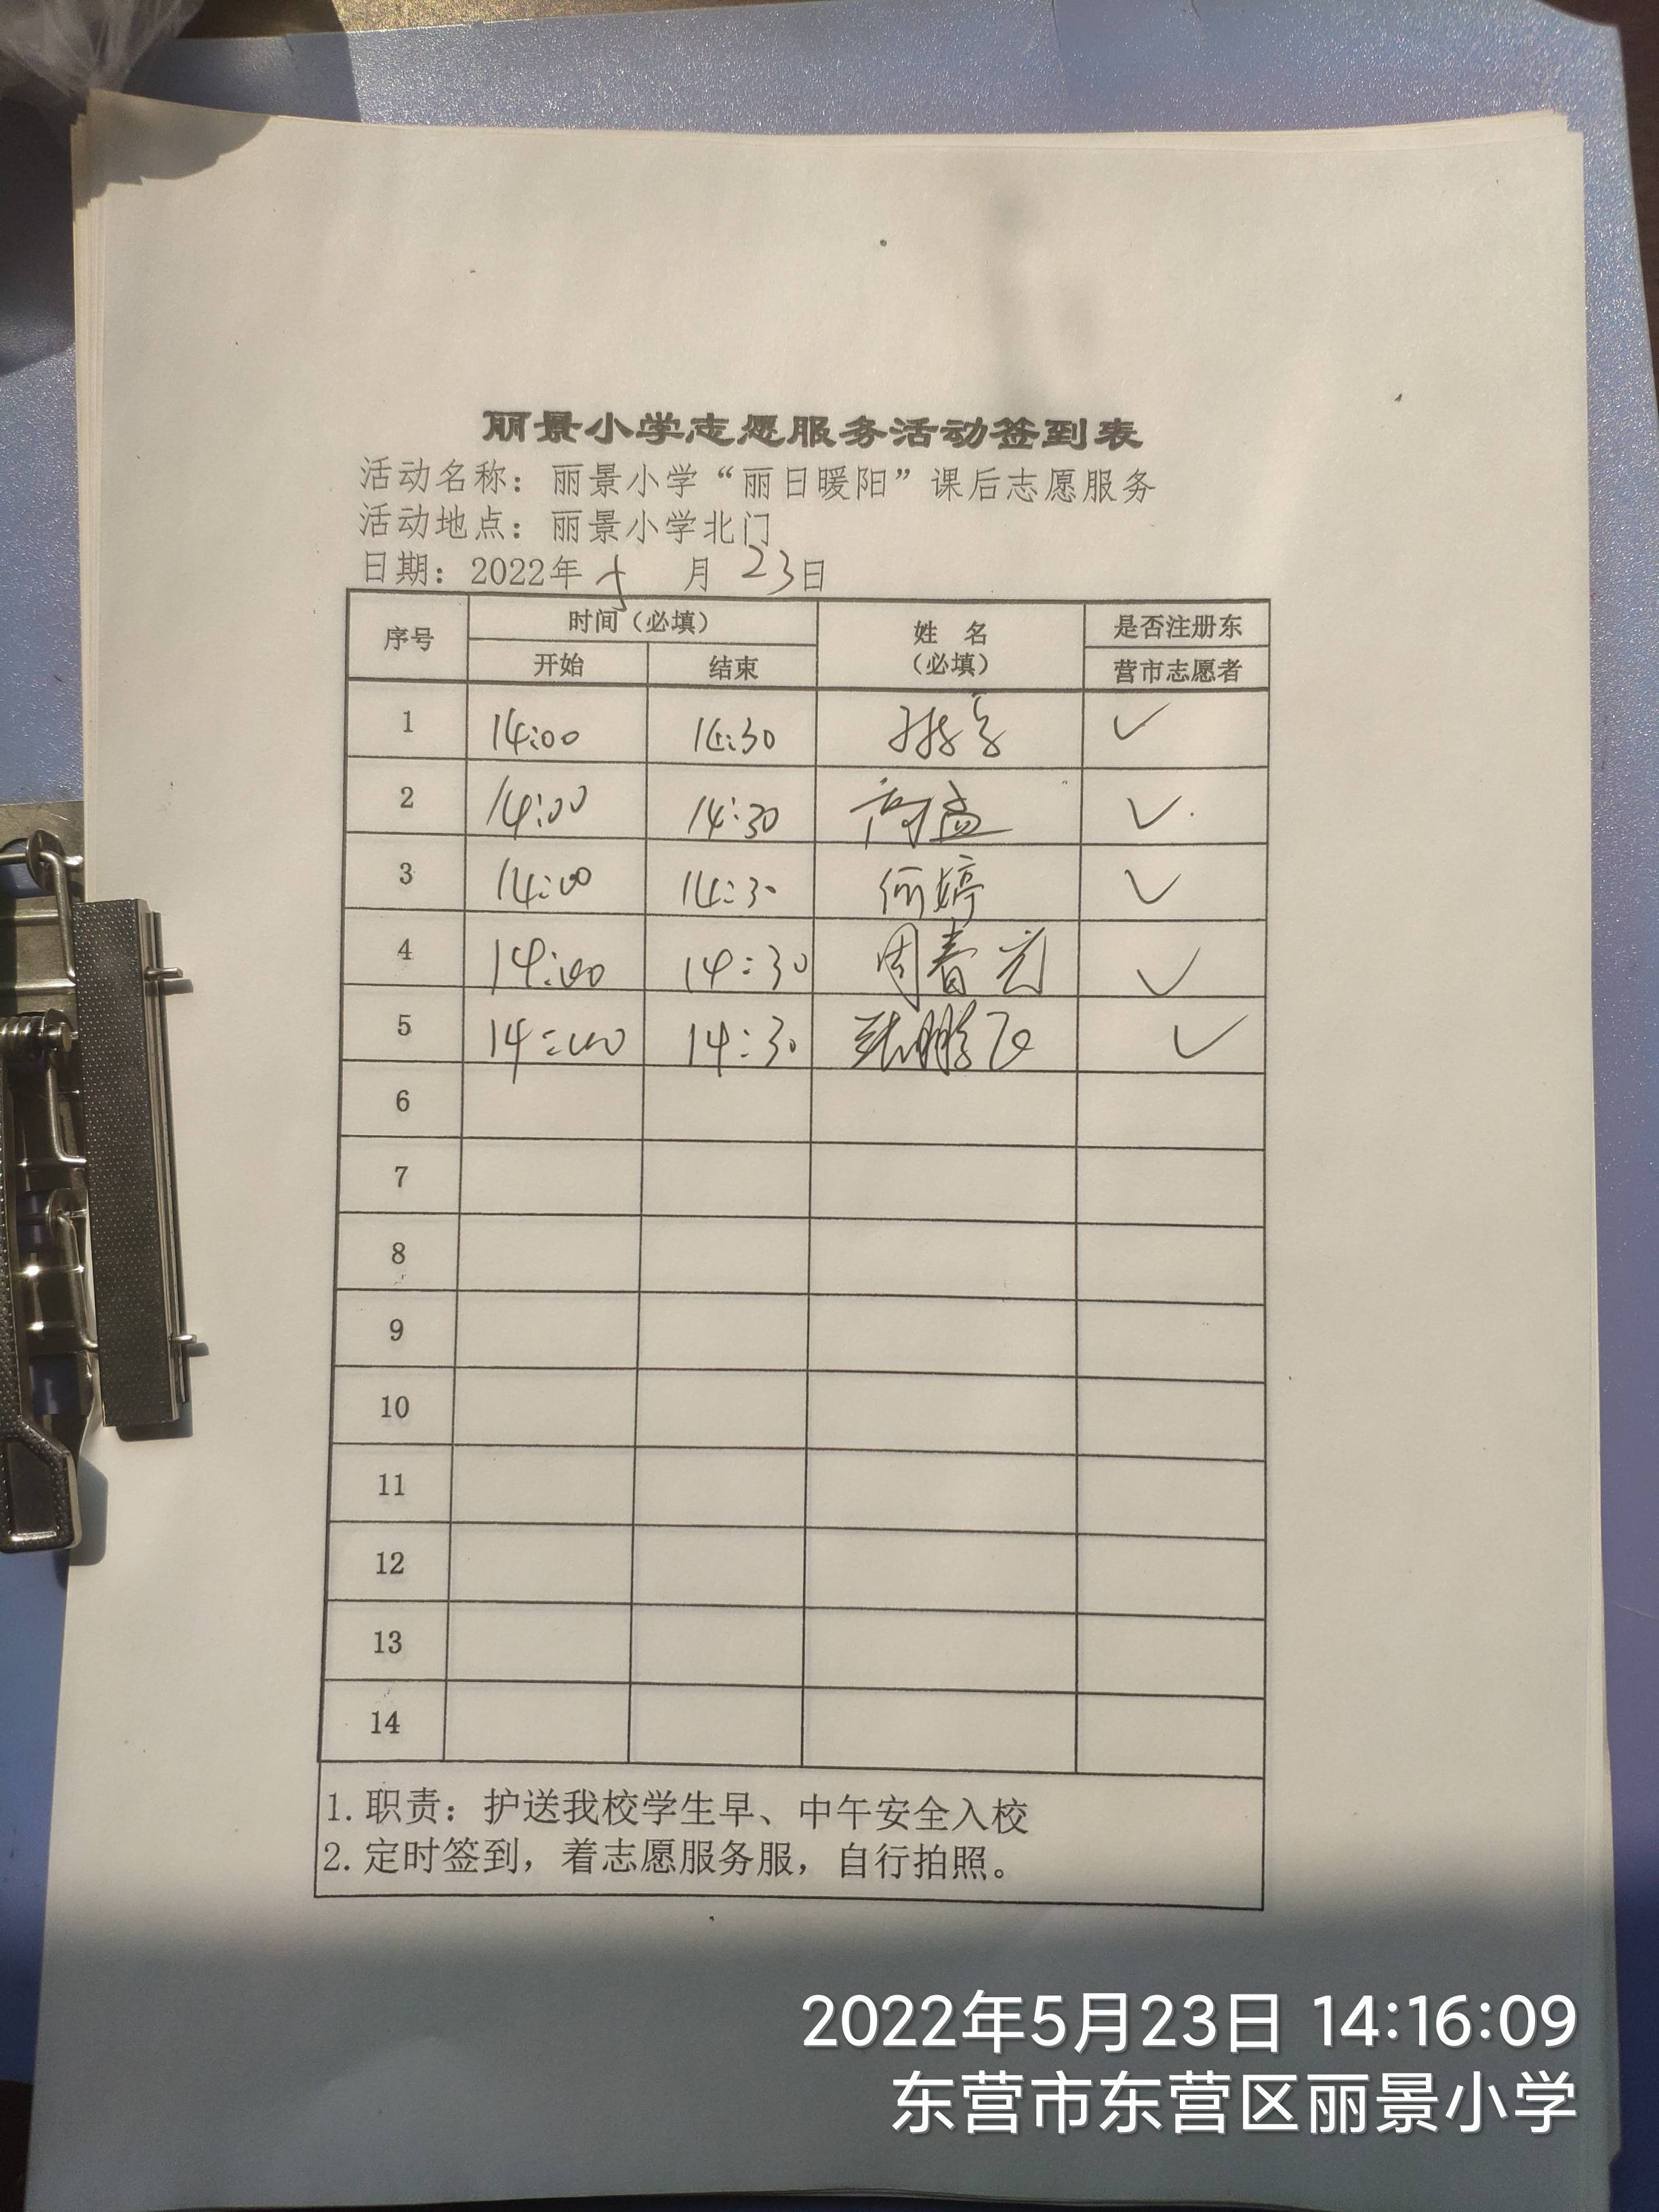 丽景小学志愿服务活动签到表
活动名称：丽景小学“丽日暖阳”课后志愿服务
活动地点：丽景小学北门
日期：2022年 5 月 23日
序号 时间（必填） 姓 名 是否注册东
开始 结束 （必填） 营市志愿者
1 14:00 14:30 ✓
2 14:00 14:30 高孟 ✓
3 14:00 14:30 何婷 ✓
4 14:00 14:30 周春光 ✓
5 14:00 14:30 张鹏飞 ✓
6
7
8
9
10
11
12
13
14
1. 职责：护送我校学生早、中午安全入校
2. 定时签到，着志愿服务服，自行拍照。
2022年5月23日 14:16:09
东营市东营区丽景小学